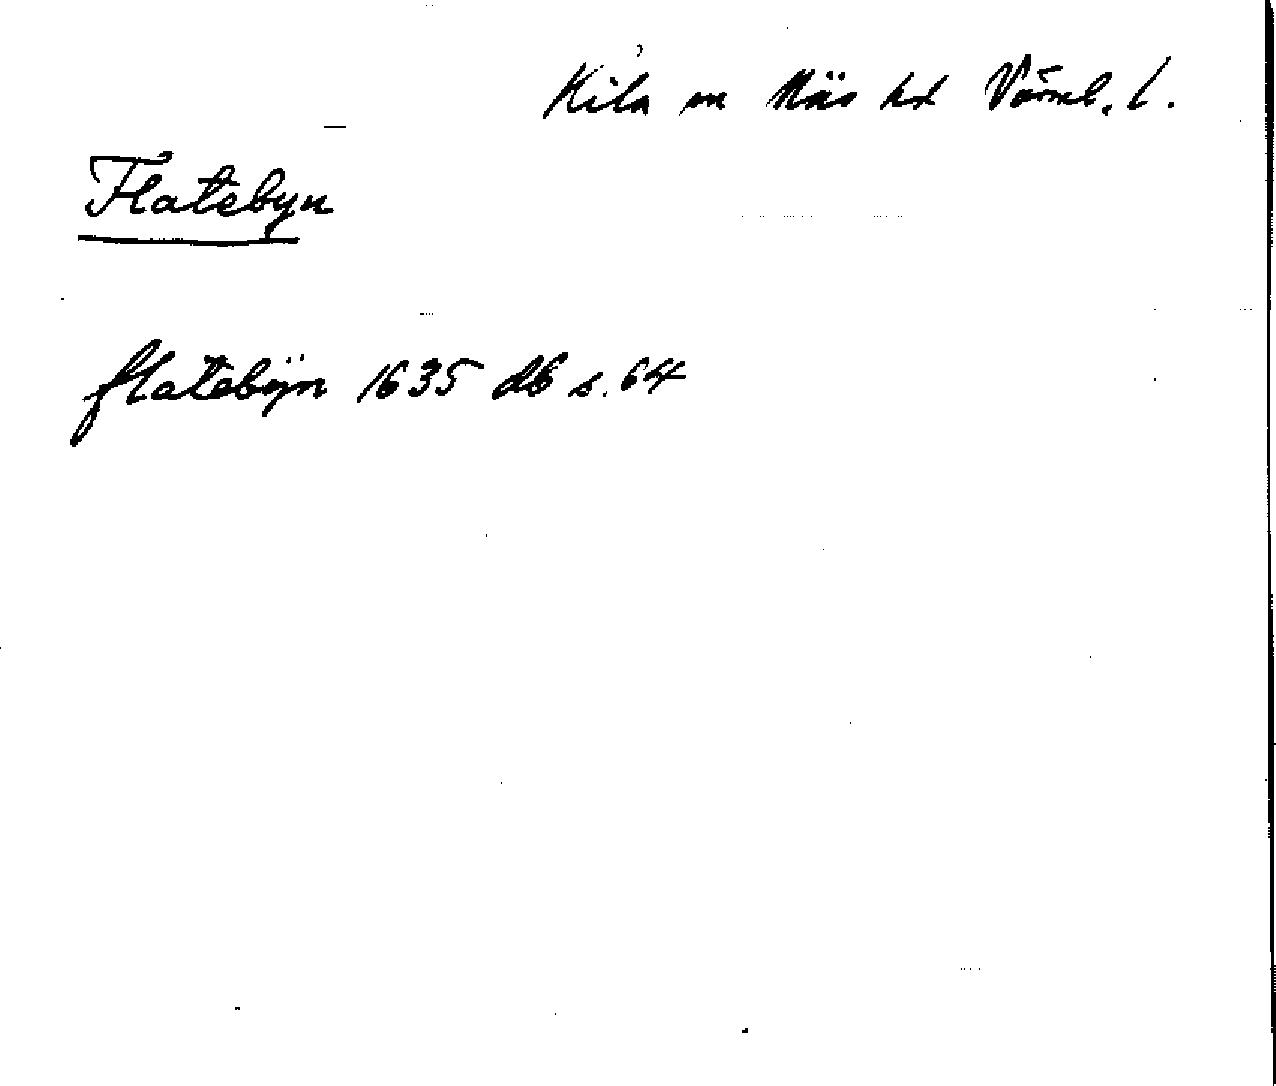 Kila sn Näs hd Värml. l.
Flatebyn
flatebÿn 1635 db s. 64